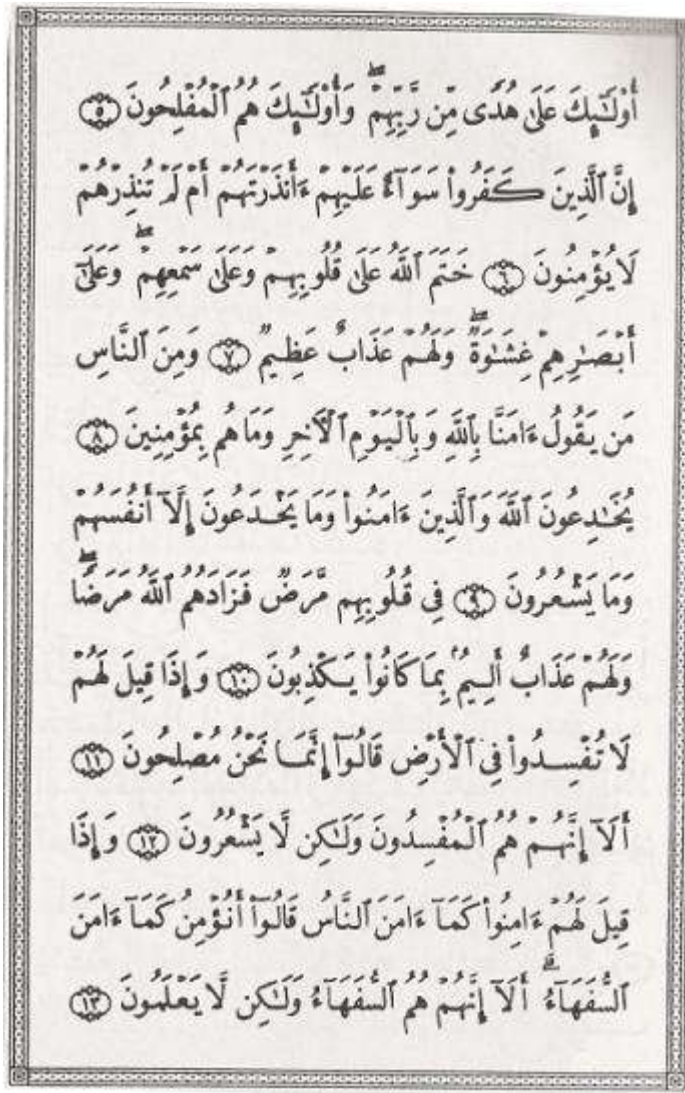 أُوْلَٰٓئِكَ عَلَىٰ هُدًى مِّن رَّبِّهِمْۖ وَأُوْلَٰٓئِكَ هُمُ ٱلْمُفْلِحُونَ ٥
إِنَّ ٱلَّذِينَ كَفَرُوا۟ سَوَآءٌ عَلَيْهِمْ ءَأَنذَرْتَهُمْ أَمْ لَمْ تُنذِرْهُمْ
لَا يُؤْمِنُونَ ٦ خَتَمَ ٱللَّهُ عَلَىٰ قُلُوبِهِمْ وَعَلَىٰ سَمْعِهِمْۖ وَعَلَىٰٓ
أَبْصَٰرِهِمْ غِشَٰوَةٌۖ وَلَهُمْ عَذَابٌ عَظِيمٌ ٧ وَمِنَ ٱلنَّاسِ
مَن يَقُولُ ءَامَنَّا بِٱللَّهِ وَبِٱلْيَوْمِ ٱلْأَخِرِ وَمَا هُم بِمُؤْمِنِينَ ٨
يُخَٰدِعُونَ ٱللَّهَ وَٱلَّذِينَ ءَامَنُوا۟ وَمَا يَخْدَعُونَ إِلَّآ أَنفُسَهُمْ
وَمَا يَشْعُرُونَ ٩ فِى قُلُوبِهِم مَّرَضٌ فَزَادَهُمُ ٱللَّهُ مَرَضًاۖ
وَلَهُمْ عَذَابٌ أَلِيمٌۢ بِمَا كَانُوا۟ يَكْذِبُونَ ١٠ وَإِذَا قِيلَ لَهُمْ
لَا تُفْسِدُوا۟ فِى ٱلْأَرْضِ قَالُوٓا۟ إِنَّمَا نَحْنُ مُصْلِحُونَ ١١
أَلَآ إِنَّهُمْ هُمُ ٱلْمُفْسِدُونَ وَلَٰكِن لَّا يَشْعُرُونَ ١٢ وَإِذَا
قِيلَ لَهُمْ ءَامِنُوا۟ كَمَآ ءَامَنَ ٱلنَّاسُ قَالُوٓا۟ أَنُؤْمِنُ كَمَآ ءَامَنَ
ٱلسُّفَهَآءُۗ أَلَآ إِنَّهُمْ هُمُ ٱلسُّفَهَآءُ وَلَٰكِن لَّا يَعْلَمُونَ ١٣